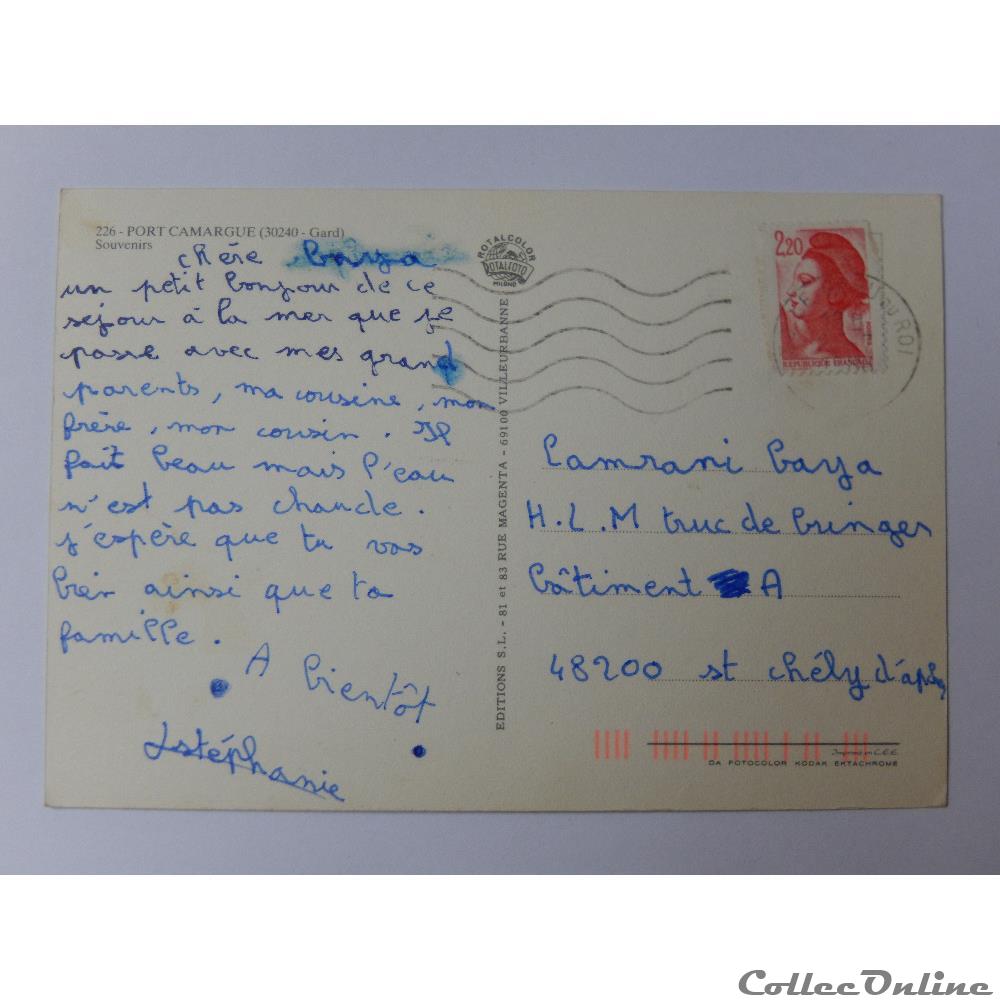 226 - PORT CAMARGUE (30240 - Gard)
Souvenirs
chère baya
un petit bonjour de ce
séjour à la mer que je
passe avec mes grand
parents, ma cousine, mon
frère, mon cousin. Il
fait beau mais l'eau
n'est pas chaude.
j'espère que tu vas
bien ainsi que ta
famille.
A bientôt
stéphanie
ROTALCOLOR
ROTALFOTO
MILANO
EDITIONS S.L. - 81 et 83 RUE MAGENTA - 69100 VILLEURBANNE
2,20
REPUBLIQUE FRANÇAISE
DU ROI
Lamrani baya
H.L.M truc de bringer
bâtiment A
48200 st chély d'apcher
Imprimé en C.E.E.
DA FOTOCOLOR KODAK EKTACHROME
CollecOnline